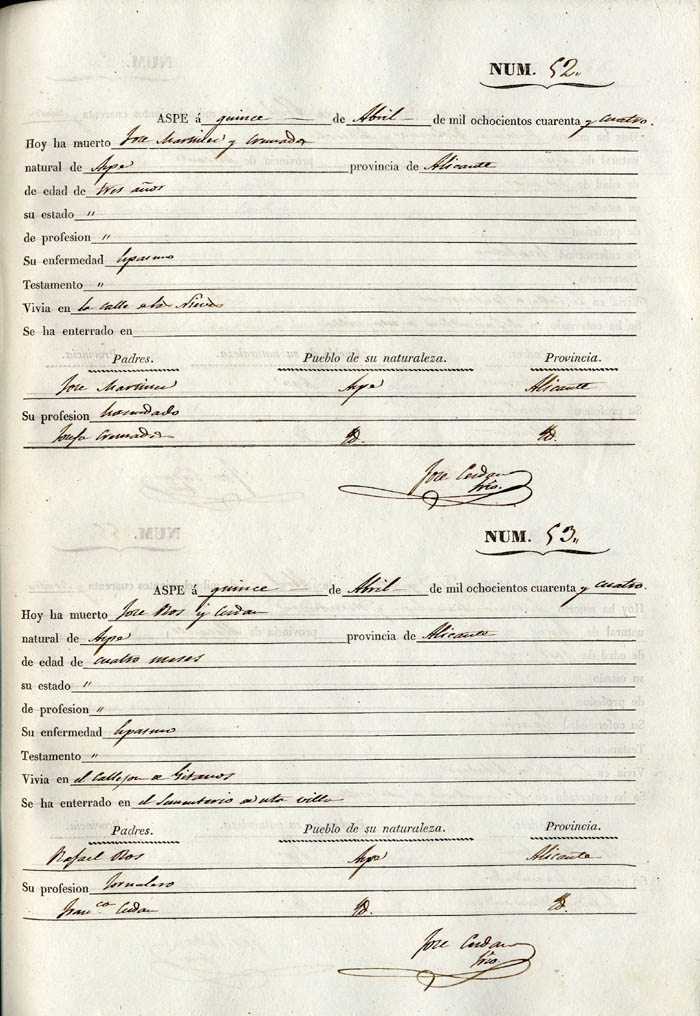 NUM. 52.
ASPE á quince de Abril de mil ochocientos cuarenta y cuatro.
Hoy ha muerto Jose Martinez y Cremades
natural de Aspe provincia de Alicante
de edad de tres años
su estado "
de profesion "
Su enfermedad Espasmo
Testamento "
Vivia en la calle de las Nieves
Se ha enterrado en
Padres. Pueblo de su naturaleza. Provincia.
Jose Martinez Aspe Alicante
Su profesion hacendado
Josefa Cremades Id. Id.
Jose Cerdan
Srio.
NUM. 53.
ASPE á quince de Abril de mil ochocientos cuarenta y cuatro.
Hoy ha muerto Jose Bos y Cerdan
natural de Aspe provincia de Alicante
de edad de cuatro meses
su estado "
de profesion "
Su enfermedad Espasmo
Testamento "
Vivia en el Callejon de Gitanos
Se ha enterrado en el Cementerio de esta villa
Padres. Pueblo de su naturaleza. Provincia.
Rafael Bos Aspe Alicante
Su profesion Jornalero
Fran.ca Cerdan Id. Id.
Jose Cerdan
Srio.